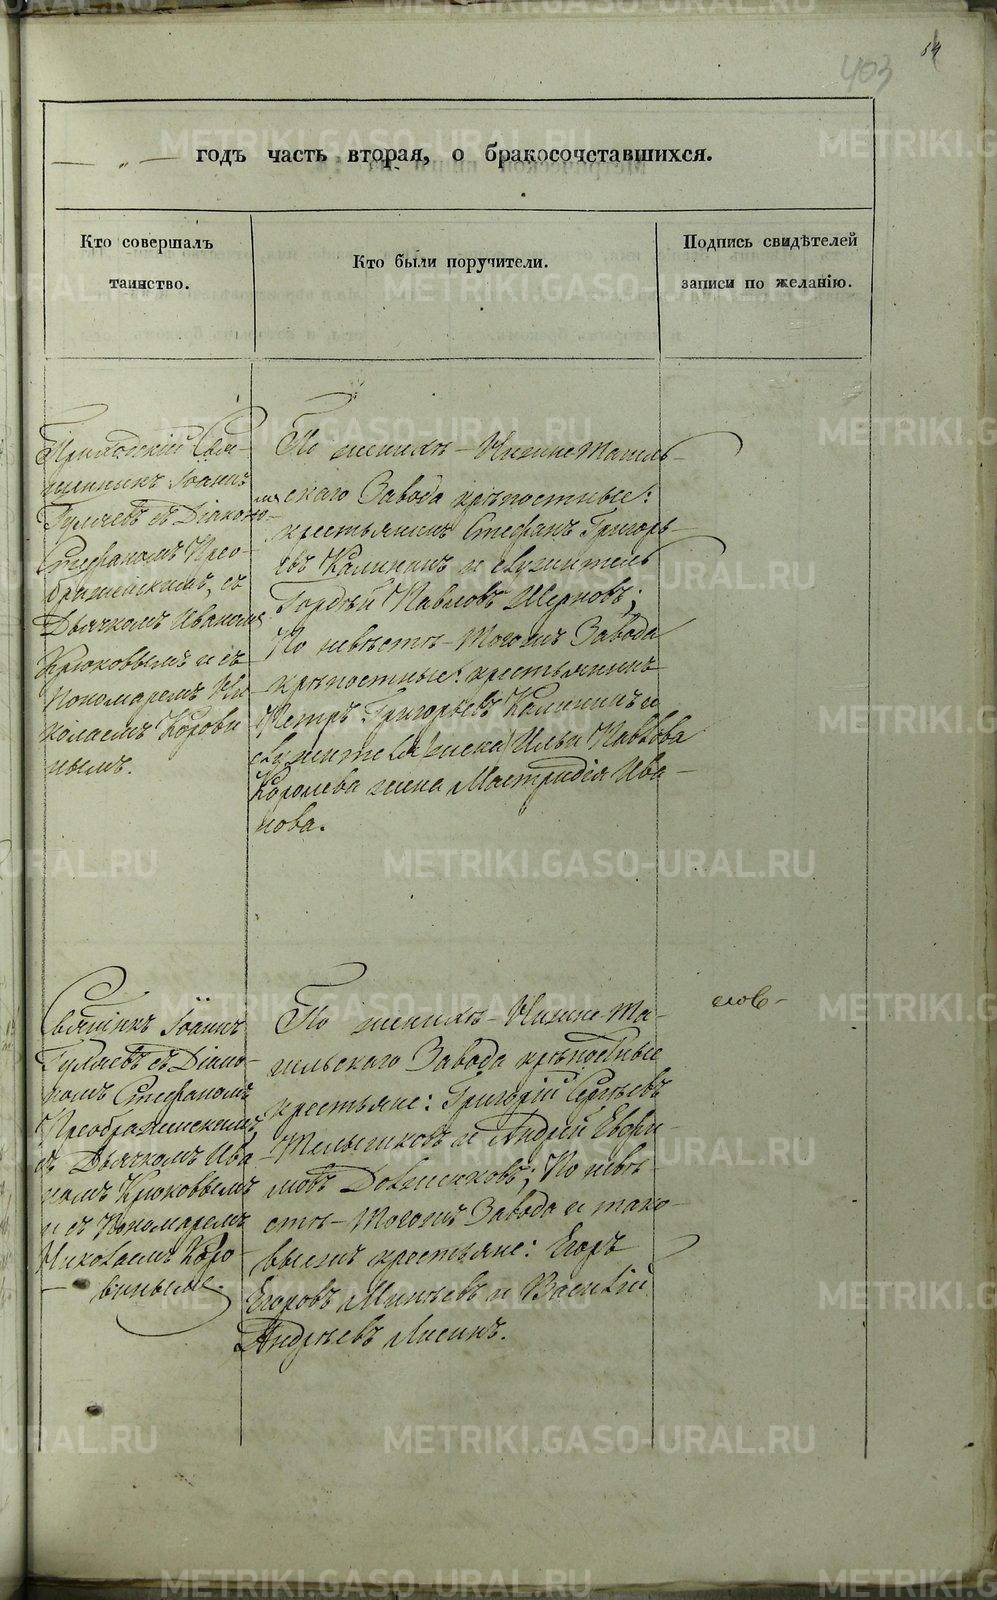 54
403
годъ часть вторая, о бракосочетавшихся.
Кто совершалъ
таинство.
Кто были поручители.
Подпись свидѣтелей
записи по желанію.
Приходскій Свя-
щенникъ Іоаннъ
Гуляевъ съ Діако-
номъ
Стефаномъ Прео-
браженскимъ, съ
Дьячкомъ Иваномъ
Крюковымъ и съ
Пономаремъ Ни
колаемъ Корови
нымъ.
По женихѣ - Нижне Тагиль-
скаго Завода крѣпостные:
крестьянинъ Стефанъ Григорь
евъ Калининъ и служитель
Гордѣй Павловъ Шерновъ;
По невѣстѣ - Тогожъ Завода
крѣпостные: крестьянинъ
Петръ Григорьевъ Калининъ и
служителя (жена) Ильи Павлова
Королева жена Мастридія Ива-
нова.
Священикъ Іоаннъ
Гуляевъ съ Діако-
номъ Стефаномъ
Преображенскимъ,
съ Дьячкомъ Ива
номъ Крюковымъ
и съ Пономаремъ
Николаемъ Коро
винымъ.
По женихѣ - Нижне Та-
гильскаго Завода крѣпостные
крестьяне: Григорій Сергѣевъ
и Андрей Евфи-
мовъ По невѣ-
стѣ - Тогожъ Завода и тако-
выежъ крестьяне: Егоръ
Егоровъ Минѣевъ и Василій
Андрѣевъ Лисинъ.
METRIKI.GASO-URAL.RU